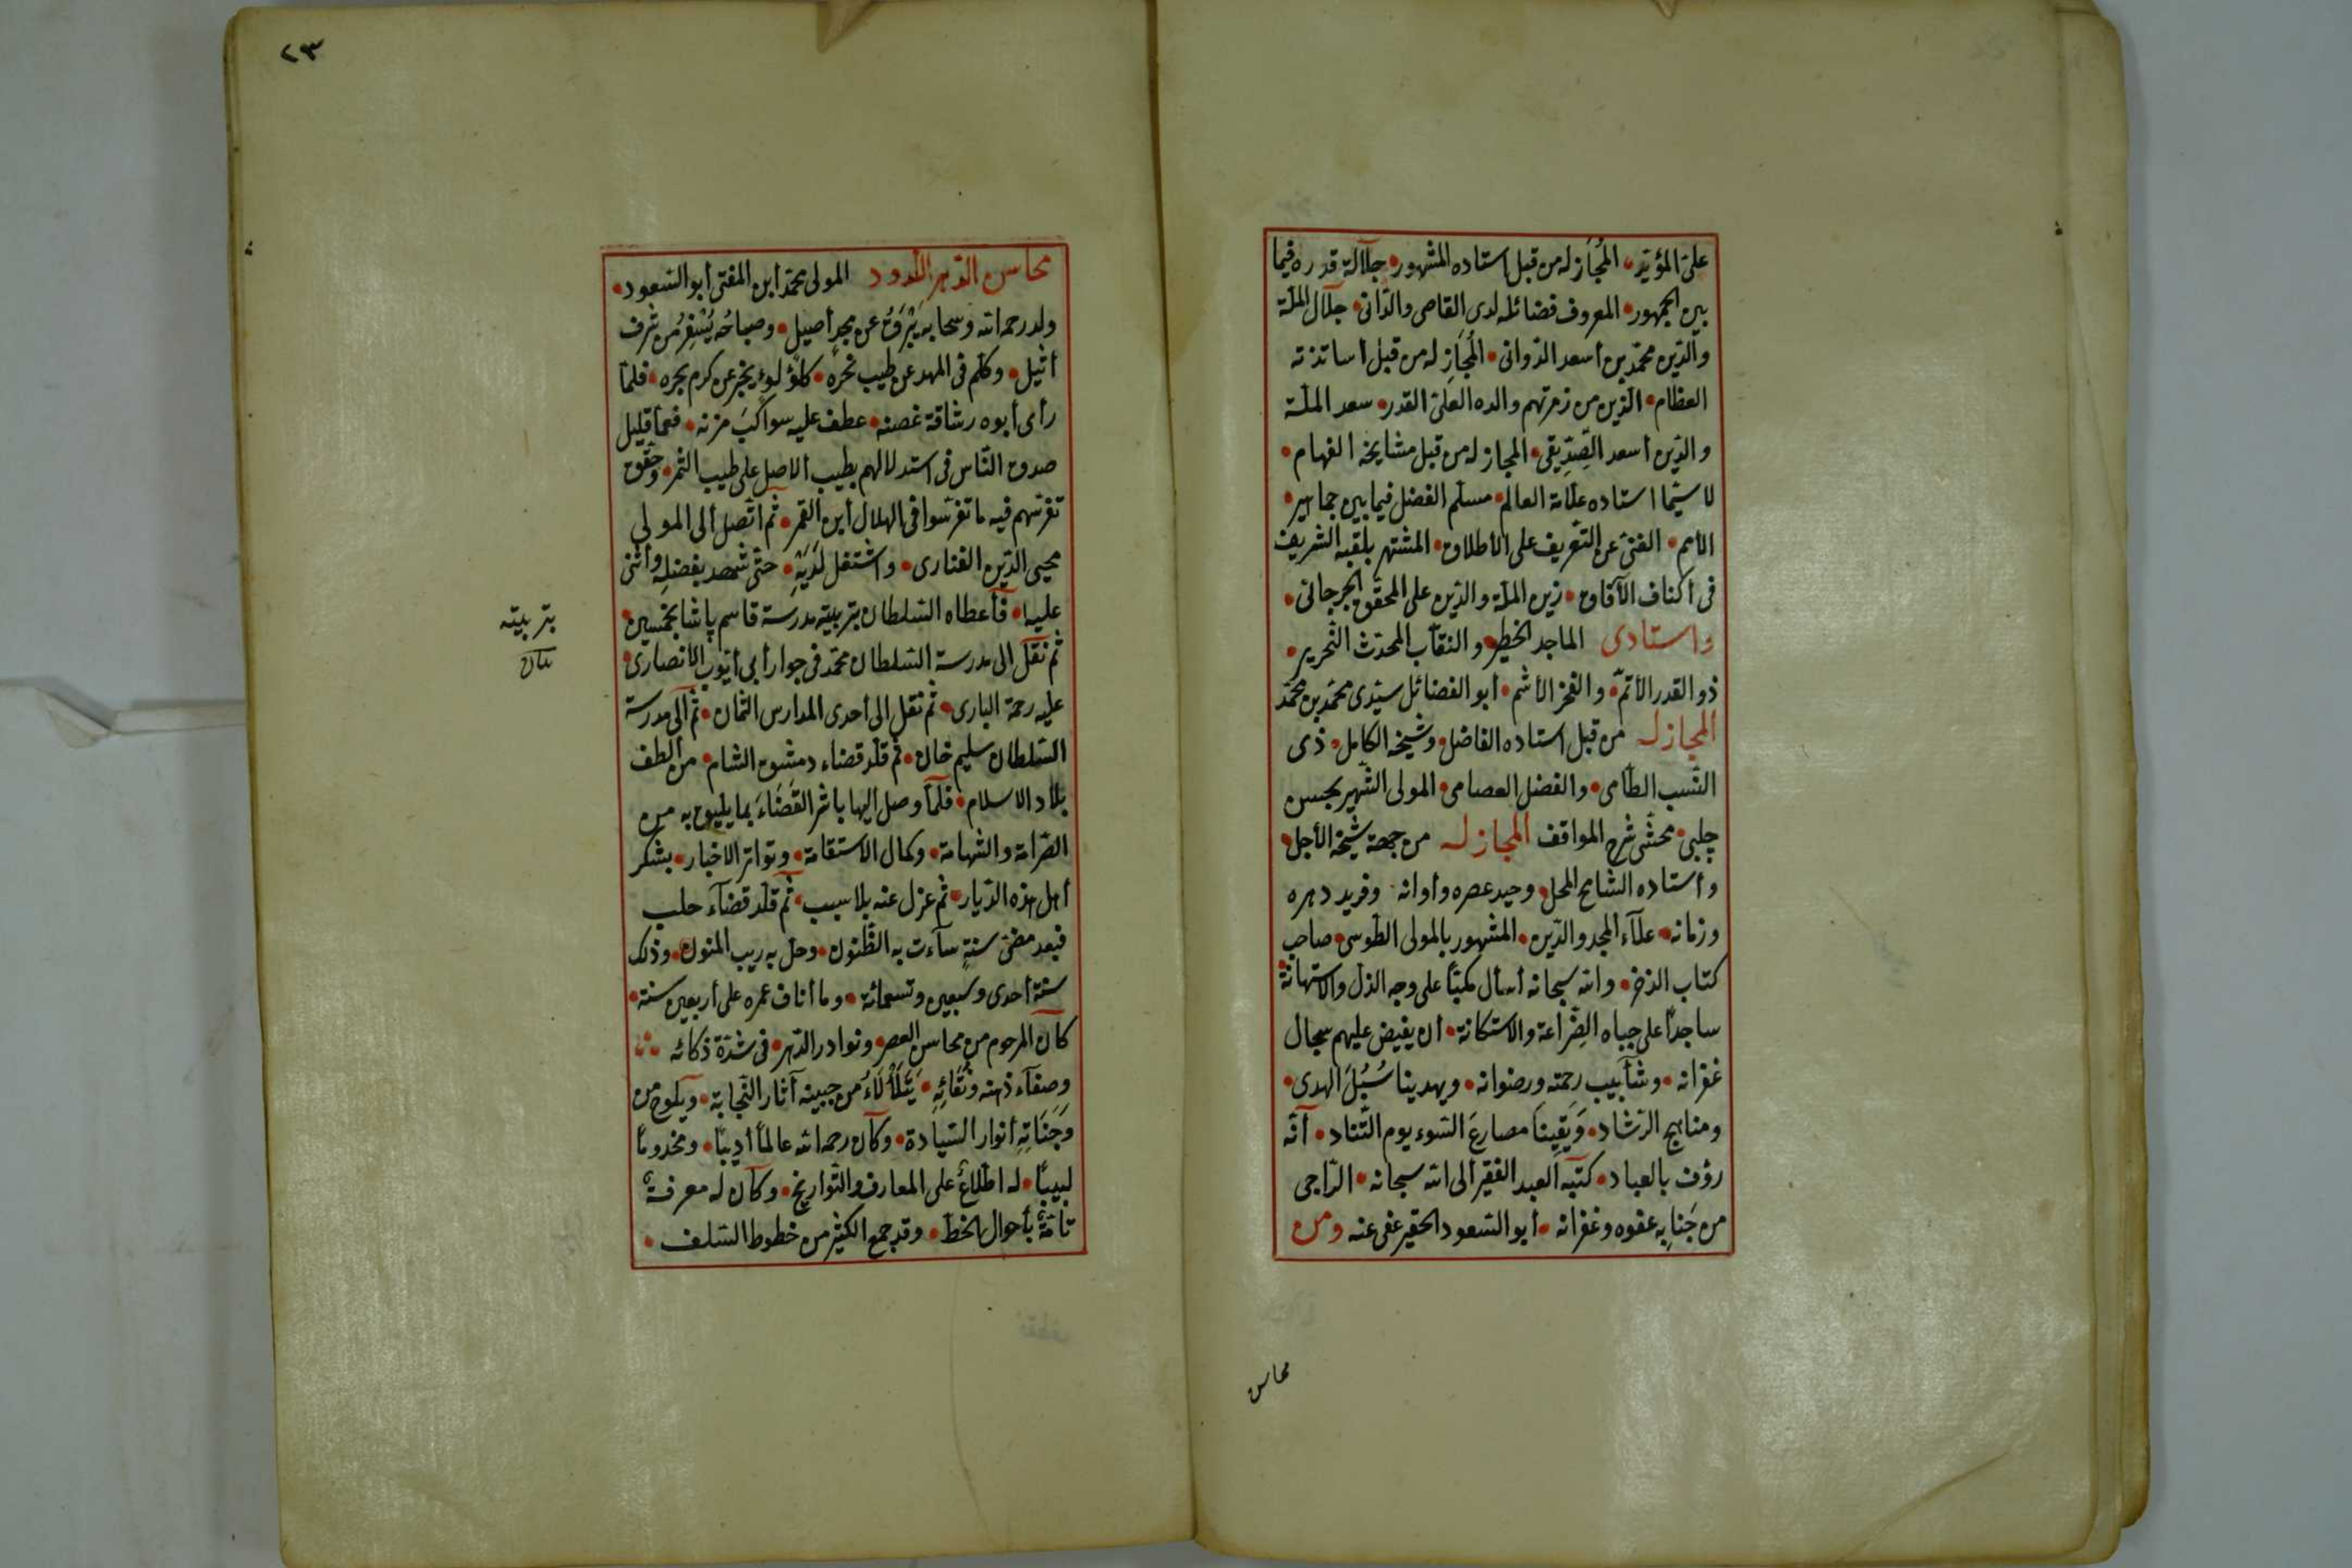 علیّ المؤید • المُجَاز له من قبل استاده المشهور • جلالة قدره فیما
بین الجمهور • المعروف فضائله لدی القاصی والدّانی • جلال الملّة
والدّین محمّد بن أسعد الدّوانی • المُجَازِ له من قبل أساتذته
العظام • الّذین من زمرتهم والده العلیّ القدر • سعد الملّة
والدّین أسعد الصِّدّیقی • المجاز له من قبل مشایخه الفهام •
لا سیّما استاده علّامة العالم • مسلّم الفضل فیما بین جماهیر •
الأمم • الغنیّ عن التّعریف علی الأطلاق • المشتهر بلقبه الشریف
فی أکناف الآفاق • زین الملّة والدّین علی المحقّق الجرجانی •
واستادی الماجد الخطیر • والنقّاب المحدّث النّحریر •
ذو القدر الأتمّ • والفخر الأشم • أبو الفضائل سیّدی محمّد بن محمّد
المجاز له من قبل استاده الفاضل • وشیخه الکامل • ذی
النّسب السّامی • والفضل العصامی • المولی الشّهیر بحسن
چلبی • محشّی شرح المواقف المجاز له من جهة شیخه الأجل •
وأستاده الشّامخ المحل • وحید عصره وأوانه • وفرید دهره
وزمانه • علآء المجد والدّین • المشهور بالمولی الطّوسی • صاحب
کتاب الذخر • والله سبحانه أسأل مکبّاً علی وجه الذلّ والاستهانة •
ساجداً علی جباه الضّراعة والاستکانة • أن یفیض علیهم سجال
غفرانه • وشآبیب رحمته ورضوانه • ویهدینا سُبُلَ الهدی •
ومناهج الرّشاد • وَیَقِینَا مصارعَ السّوء یوم التّناد • أنّه
رؤف بالعباد • کتبه العبد الفقیر ألی الله سبحانه • الرّاجی
من جَنابِه عفوه وغفرانه • أبو السّعود الحقیر عفی عنه ومن
محاس
٢٣
محاسن الدّهر المولی محمّد أبن المفتی أبو السّعود •
ولد رحمه الله وسحابه یَبْرَقُ عن مجدٍ أصیل • وصباحُه یُسْفِرُ من شرف
أثیل • وکلّم فی المهد عن طیب نحره • کلؤلوءٍ یخبر عن کرم بحره • فلمّا
رأی أبوه رشاقة غصنه • عطف علیه سواکبَ مزنه • فعمّا قلیل
صدق النّاس فی استدلالهم بطیب الاصل علی طیب الثمر • وحقّق
تفرّسهم فیه ما تفرّسوا فی الهلال أبن القمر • ثم اتّصل ألی المولی
محیی الدّین الفناری • واشتغل لَدَیْهِ • حتّی شهد بفضلِهِ وأثنی
علیه • فأعطاه السّلطان بتربیته مدرسة قاسم پاشا بخمسین •
ثم نقل الی مدرسة السّلطان محمّد فی جوار أبی أیّوب الأنصاریّ •
علیه رحمة الباری • ثم نقل الی أحدی المدارس الثّمان • ثم ألی مدرسة
السّلطان سلیم خان • ثم قلّد قضاء دمشق الشّام • من ألطف
بلاد الاسلام • فلمّا وصل ألیها باشر القَضَاءَ بما یلیق به من
الصّرامة والشّهامة • وکمال الاستقامة • وتواتر الاخبار • بشکر
أهل هذه الدّیار • ثم عزل عنه بلا سبب • ثم قلّد قضآء حلب
فبعد مضیّ سنةٍ سآءت به الظّنون • وحلّ به ریب المنون • وذلک
سنة أحدی وسبعین وتسعمائة • وما أناف عمره علی أربعین سنة •
کان المرحوم من محاسن العصر • ونوادر الدّهر • فی شدّة ذکائه
وصفآء ذهنه ونَقَائِهِ • یَتَلَأْلَاءُ من جبینه آثار النّجابة • ویلوح من
وَجَنَاتِهِ أنوار السّیادة • وکان رحمه الله عالماً أدیبًا • ومخدومًا
لبیبًا • له اطّلاعٌ علی المعارف والتّواریخ • وکان له معرفةٌ
تامّةٌ بأحوال الخطّ • وقد جمع الکثیر من خطوط السّلف •
بتربیته